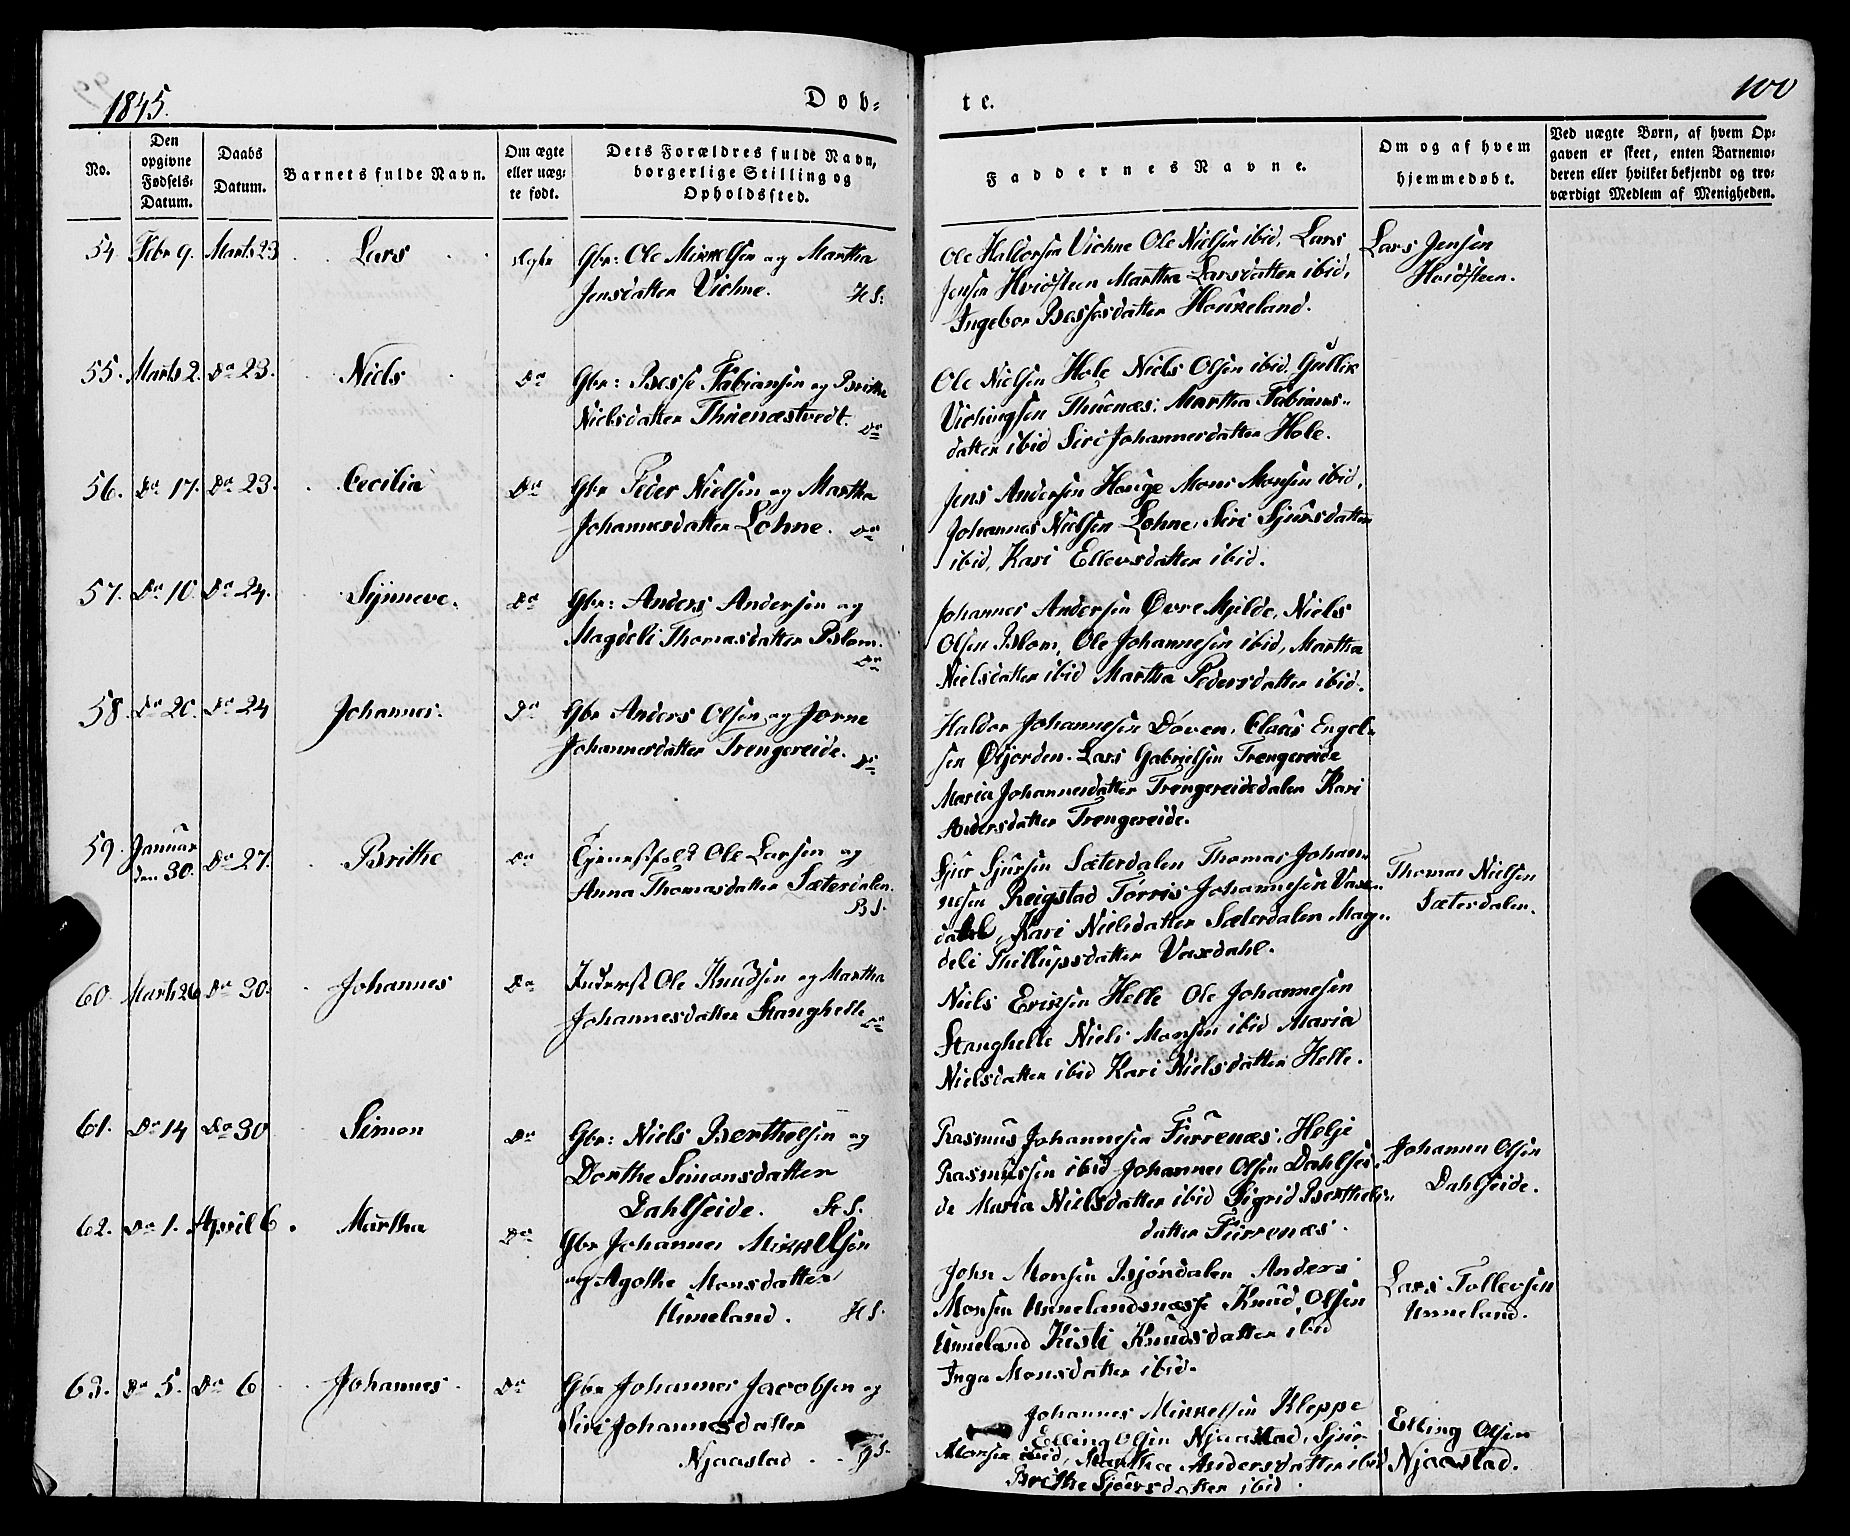 1845.
Døb-
te.
100
No.
Den opgivne Fødsels-Datum.
Daabs Datum.
Barnets fulde Navn.
Om ægte eller uægte født.
Dets Forældres fulde Navn, borgerlige Stilling og Opholdssted.
Faddernes Navne.
Om og af hvem hjemmedøbt.
Ved uægte Børn, af hvem Op-
gaven er skeet, enten Barnemo-
deren eller hvilket bekjendt og tro-
værdigt Medlem af Menigheden.
54. Febr 9. Marts 23 Lars Ægte
Gbr: Ole Mikkelsen og Martha
Jensdatter Vichne. H S.
Ole Haldorsen Vichne Ole Nielsen ibid, Lars
Jensen Hvidsteen Martha Larsdatter ibid,
Ingebor Bessesdatter Houkeland.
Lars Jensen
Hvidsteen.
55. Marts 2. Do 23. Niels Do
Gbr: Besse Fabiansen og Brithe
Nielsdatter Thuenæstvedt. Do
Ole Nielsen Hole Niels Olsen ibid, Gullik
Vichingsen Thuenæs, Martha Fabians-
datter ibid Siri Johannesdatter Hole.
56. Do 17. Do 23. Cecilia Do
Gbr Peder Nielsen og Martha
Johannesdatter Lohne. Do
Jens Andersen Houge Mons Monsen ibid,
Johannes Nielsen Lohne, Siri Sjursdatter
ibid, Kari Ellevsdatter ibid.
57. Do 10. Do 24. Synneve. Do
Gbr: Anders Andersen og
Magdeli Thomasdatter Blom. Do
Johannes Andersen Øvre Mjelde, Niels
Olsen Blom, Ole Johannesen ibid, Martha
Nielsdatter ibid Martha Pedersdatter ibid.
58. Do 20. Do 24 Johannes. Do
Gbr Anders Olsen og Jorne
Johannesdatter Trengereide. Do
Haldor Johannesen Døven, Claus Engel-
sen Øfjorden. Lars Gabrielsen Trengereide
Maria Johannesdatter Trengereidedalen Kari
Andersdatter Trengereide.
59. Januar den 30. Do 27. Brithe Do
Tjenestfolk Ole Larsen og
Anna Thomasdatter Sæterdalen. B S.
Sjur Sjursen Sæterdalen Thomas Johan-
nesen Reigstad Torris Johannesen Vax-
dahl, Kari Nielsdatter Sæterdalen Mag-
deli Phillupsdatter Vaxdahl.
Thomas Nielsen
Sæterdalen.
60. Marts 26 Do 30. Johannes Do
Inderst Ole Knudsen og Martha
Johannesdatter Stanghelle Do
Niels Eriksen Helle Ole Johannesen
Stanghelle Niels Monsen ibid Maria
Nielsdatter ibid Kari Nielsdatter Helle.
61. Do 14 Do 30 Simon Do
Gbr: Niels Berthelsen og
Dorthe Simonsdatter
Dahlseide. H S.
Rasmus Johannesen Furrenæs, Helje
Rasmussen ibid Johannes Olsen Dahlsei-
de Maria Nielsdatter ibid Sigrid Berthels-
datter Furrenæs.
Johannes Olsen
Dahlseide.
62. Do 1. April 6. Martha Do
Gbr Johannes Mikkelsen
og Agothe Monsdatter
Unneland. H S.
John Monsen Bjørndalen Anders
Monsen Unnelandsnæsse Knud Olsen
Unneland Kisti Knudsdatter ibid
Inga Monsdatter ibid.
Lars Tollevsen
Unneland.
63. Do 5. Do 6 Johannes. Do
Gbr Johannes Jacobsen og
Siri Johannesdatter
Njaastad
Johannes Mikkelsen Kleppe
Elling Olsen Njaastad, Sjur
Monsen ibid, Martha Andersdatter ibid
Brithe Sjursdatter ibid.
Elling Olsen
Njaastad.